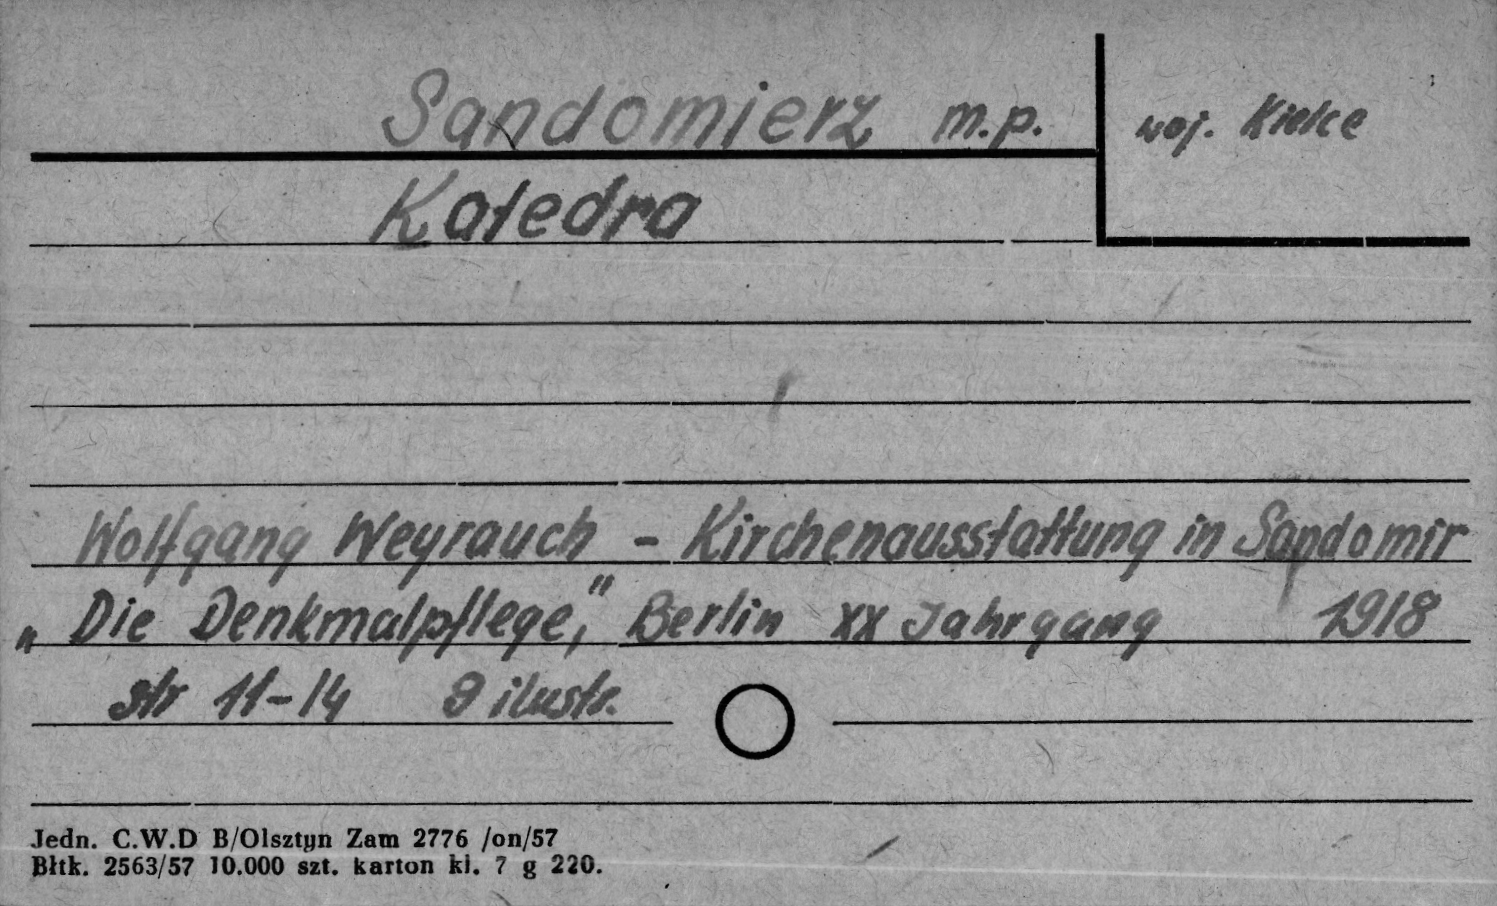 Sandomierz m.p.
woj. Kielce
Katedra
Wolfgang Weyrauch - Kirchenausstattung in Sandomir
„Die Denkmalpflege," Berlin XX Jahrgang 1918
str 11-14 9 ilustr.
Jedn. C.W.D B/Olsztyn Zam 2776 /on/57
Błtk. 2563/57 10.000 szt. karton kl. 7 g 220.